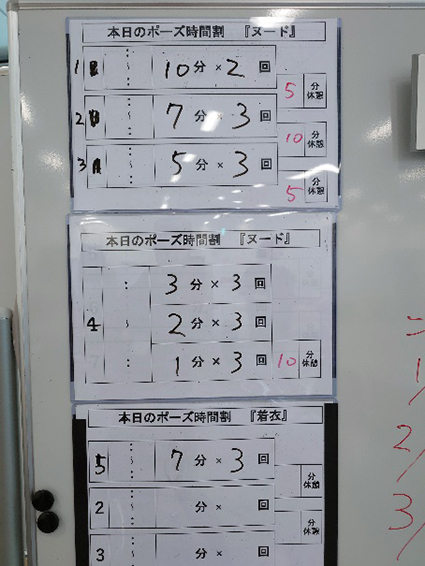 本日のポーズ時間割 『ヌード』
1 10分×2回
5分休憩
2 7分×3回
10分休憩
3 5分×3回
5分休憩
本日のポーズ時間割 『ヌード』
3分×3回
4 2分×3回
1分×3回 10分休憩
本日のポーズ時間割 『着衣』
5 7分×3回
分休憩
2 分×回
分休憩
3 分×回
1/
2/
3/